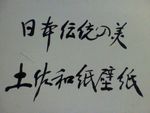 日本伝統の美
土佐和紙壁紙